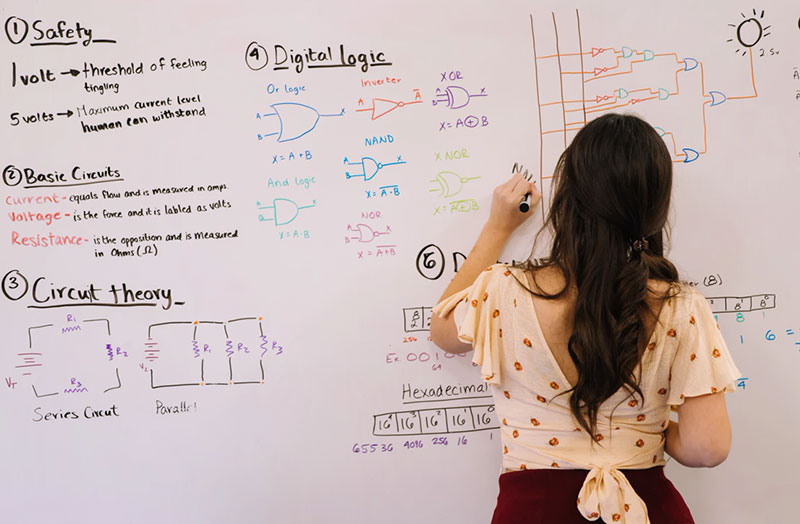 ① Safety
1 volt → threshold of feeling
tingling
5 volts → Maximum current level
human can withstand
② Basic Circuits
Current - equals flow and is measured in amps
Voltage - is the force and it is labled as volts
Resistance - is the opposition and is measured
in Ohms (Ω)
③ Circut theory
R₁
R₂
R₃
V_T
Series Circut
R₁
R₂
R₃
Parallel
④ Digital logic
Or logic
A
B
X
X = A + B
And logic
X = A · B
Inverter
A
A̅
NAND
A
B
X
X = A̅·̅B̅
NOR
X = A̅+̅B̅
XOR
A
B
X
X = A ⊕ B
X NOR
X = A̅⊕̅B̅
2.5v
(8)
8¹
8⁰
8
1
256
64
Ex.
001
1
6 =
4
Hexadecimal
16⁴ 16³ 16² 16¹ 16⁰
65536 4096 256 16 1